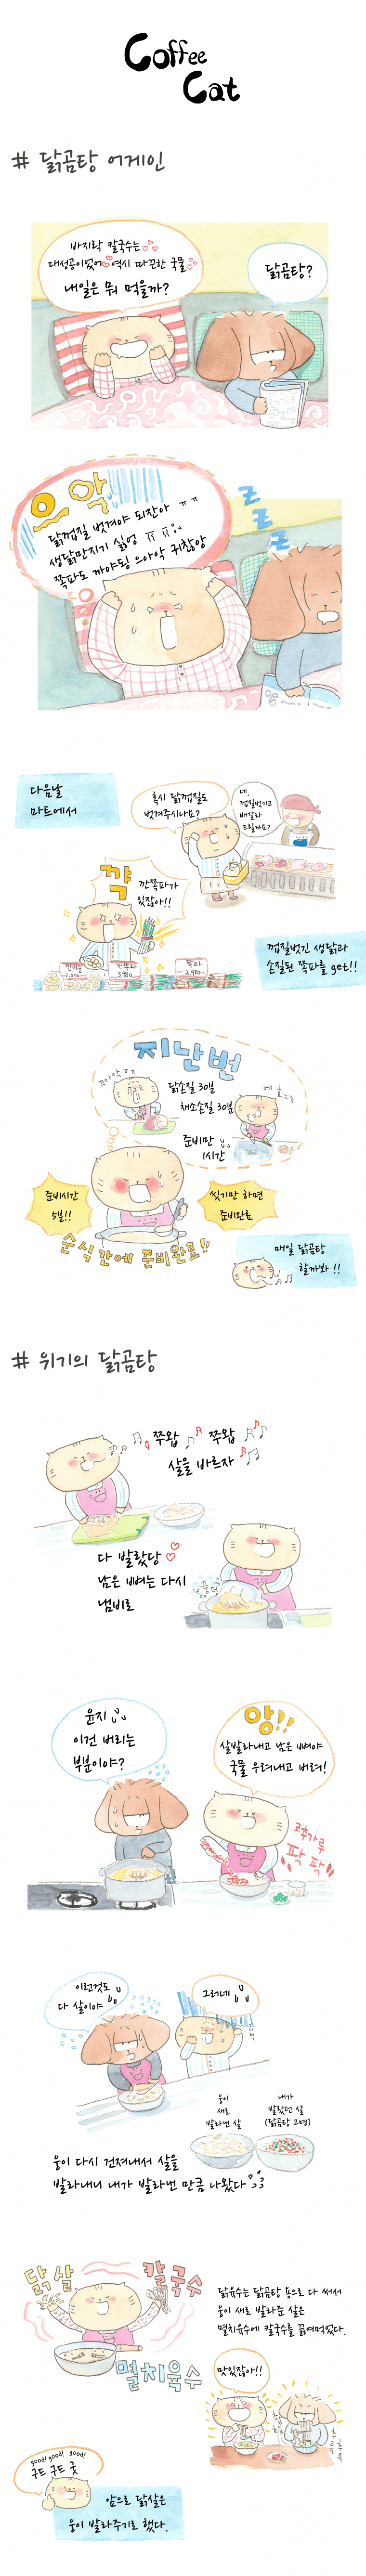 Coffee
Cat
# 닭곰탕 어게인
바지락 칼국수는
대성공이었어 역시 따끈한 국물
내일은 뭐 먹을까?
닭곰탕?
으악
닭껍질 벗겨야 되잖아 ㅠㅠ
생닭만지기 싫엉 ㅠㅠ
쪽파도 까야되잉 으아악 귀찮앙
z z z
다음날
마트에서
혹시 닭껍질도
벗겨주시나요?
네,
껍질벗기고
배갈라
드릴까요?
꺅
깐쪽파가
있잖아!!
깐쪽파
3,980
쪽파
2,980
껍질벗긴 생닭과
손질된 쪽파를 get!!
지난번
끄아악 ㅠㅠ
닭손질 30분
채소손질 30분
에효
준비만
1시간
준비시간
5분!!
씻기만 하면
준비완료
순식간에 준비완료!!
매일 닭곰탕
할까봐!!
# 위기의 닭곰탕
쭈왑 쭈왑
살을 바르자
다 발랐당
남은 뼈는 다시
냄비로
풍덩
윤지
이건 버리는
부분이야?
앙!!
살발라내고 남은 뼈야
국물 우려내고 버려!
고춧가루
팍팍
이런것도
다 살이야
그러네
웅이
새로
발라낸 살
내가
발랐던 살
(닭곰탕 고명)
웅이 다시 건져내서 살을
발라내니 내가 발라낸 만큼 나왔다
닭살
칼국수
멸치육수
닭육수는 닭곰탕 용으로 다 써서
웅이 새로 발라준 살은
멸치육수에 칼국수를 끓여먹었다.
맛있잖아!!
good! good! good!
구트 구트 굿
앞으로 닭살은
웅이 발라주기로 했다.